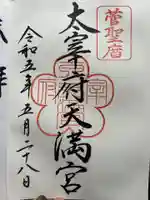 菅聖廟
太宰府天満宮
令和五年五月二十八日
拝